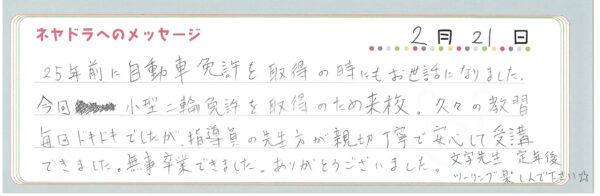 ネヤドラへのメッセージ
2月21日
25年前に自動車免許を取得の時にもお世話になりました。
今回 小型二輪免許を取得のため来校。久々の教習
毎日ドキドキでしたが、指導員の先生方が親切丁寧で安心して受講
できました。無事卒業できました。ありがとうございました。
文字先生 定年後
ツーリング楽しんで下さい☆